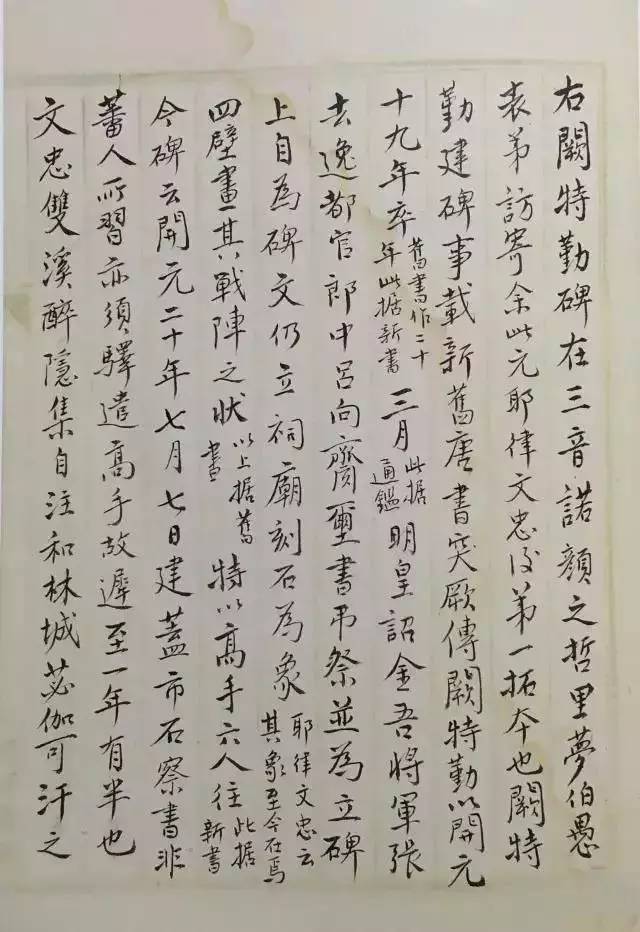 右闕特勤碑在三音諾顏之哲里夢伯愚
表弟訪寄余此元耶律文忠後第一拓本也闕特
勤建碑事載新舊唐書突厥傳闕特勤以開元
十九年卒舊書作二十年此据新書三月此据通鑑明皇詔金吾將軍張
去逸都官郎中呂向齎璽書弔祭並為立碑
上自為碑文仍立祠廟刻石為象耶律文忠云其象至今在焉
四壁畫其戰陣之狀以上据舊書特以高手六人往此据新書
今碑云開元二十年七月七日建蓋市石察書非
蕃人所習亦須驛遣高手故遲至一年有半也
文忠雙溪醉隱集自注和林城苾伽可汗之